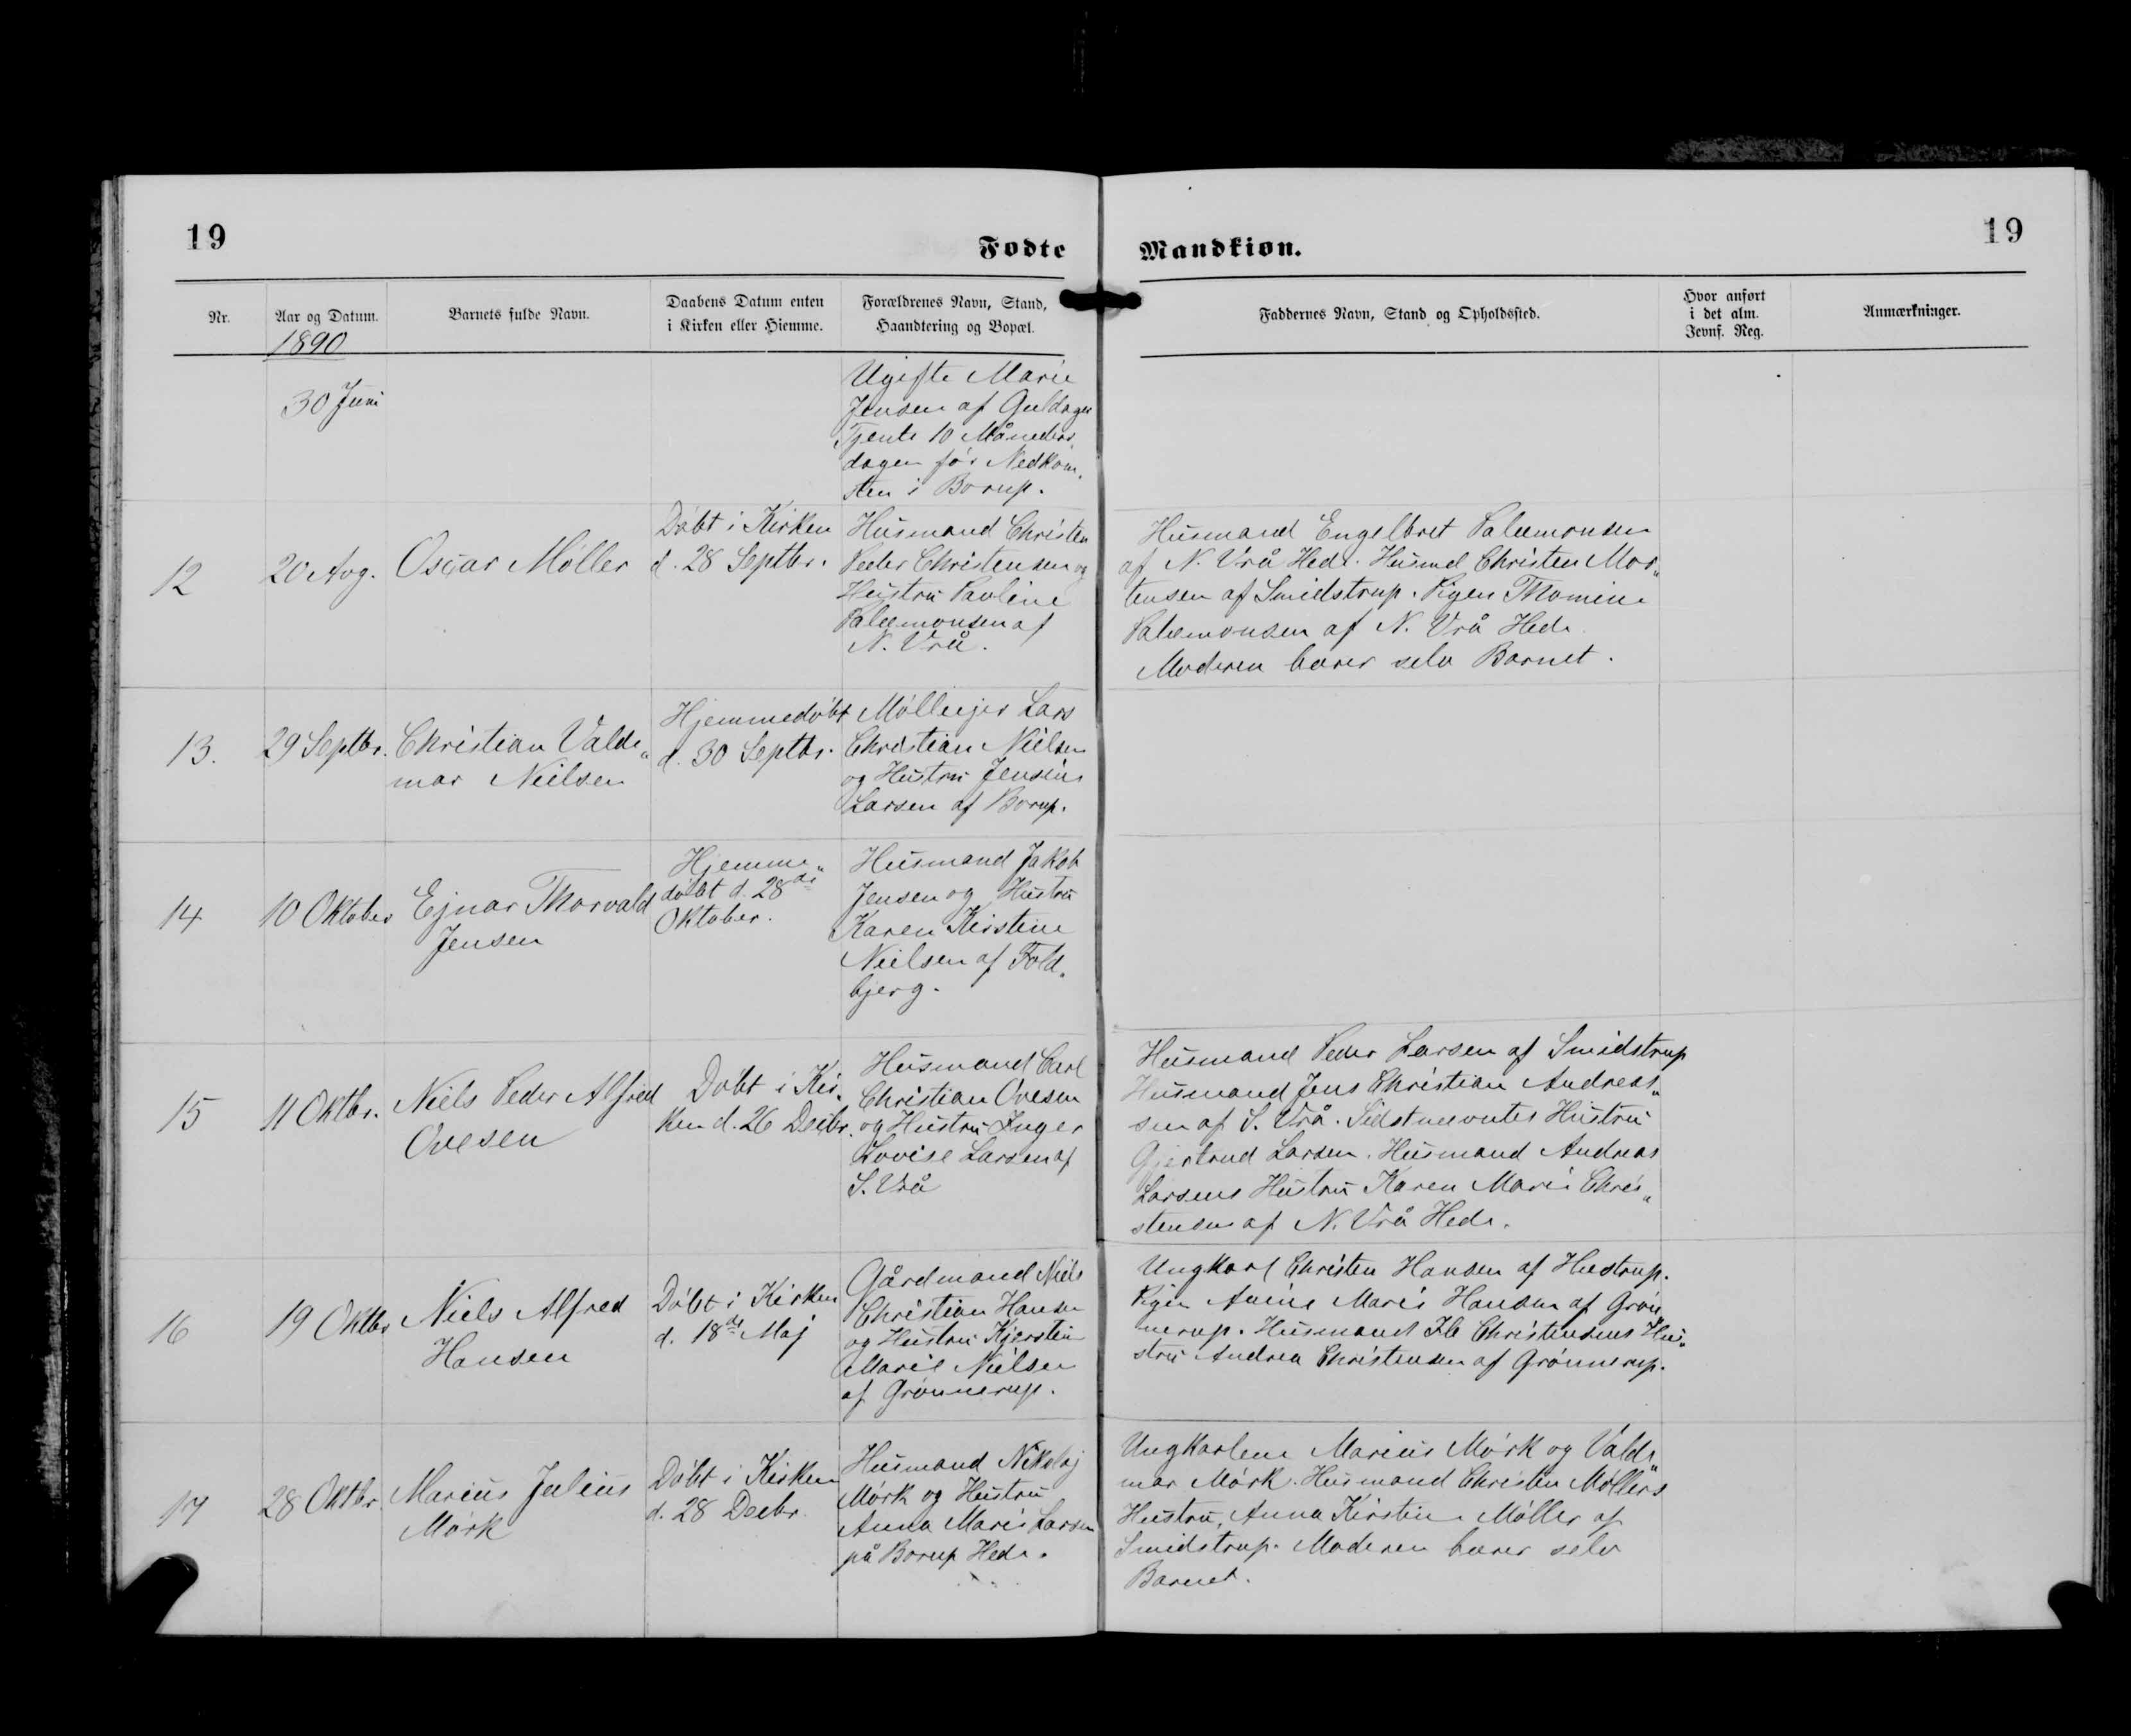 19
Fødte
Mandkiøn.
19
Nr.
Aar og Datum.
1890
Barnets fulde Navn.
Daabens Datum enten
i Kirken eller Hiemme.
Forældrenes Navn, Stand,
Haandtering og Bopæl.
Faddernes Navn, Stand og Opholdssted.
Hvor anført
i det alm.
Jevnf. Reg.
Anmærkninger.
30 Juni
Ugifte Marie
Jensen af Guldager
Tjente 10 Måneders
dagen før Nedkom„
sten i Borup.
12
20 Avg.
Oscar Møller
Døbt i Kirken
d. 28 Septbr.
Husmand Christen
Peder Christensen og
Hustru Pavline
Palæmonsen af
N. Vrå.
Husmand Engelbret Palæmonsen
af N. Vrå Hede. Husmd Christen Mor„
tensen af Smidstrup. Pigen Thomine
Palæmonsen af N. Vrå Hede
Moderen bærer selv Barnet.
13.
29 Septbr.
Christian Valde„
mar Nielsen
Hjemmedøbt
d. 30 Septbr.
Møllejer Lars
Christian Nielsen
og Hustru Jensine
Larsen af Borup.
14
10 Oktober
Ejnar Thorvald
Jensen
Hjemme„
døbt d. 28de
Oktober.
Husmand Jakob
Jensen og Hustru
Karen Kirstine
Nielsen af Fold„
bjerg.
15
11 Oktbr.
Niels Peder Alfred
Ovesen
Døbt i Kir„
ken d. 26 Decbr.
Husmand Carl
Christian Ovesen
og Hustru Inger
Lovise Larsen af
S. Vrå
Husmand Peder Larsen af Smidstrup
Husmand Jens Christian Andreas„
sen af S. Vrå. Sidstnævntes Hustru
Gjertrud Larsen. Husmand Andreas
Larsens Hustru Karen Marie Chri„
stensen af N. Vrå Hede.
16
19 Oktbr
Niels Alfred
Hansen
Døbt i Kirken
d. 18de Maj
Gårdmand Niels
Christian Hansen
og Hustru Kjerstine
Marie Nielsen
af Grønnerup.
Ungkarl Christen Hansen af Hustrup.
Pigen Anine Marie Hansen af Grøn„
nerup. Husmand Ib Christensens Hu„
stru Andrea Christensen af Grønnerup.
17
28 Oktbr.
Marius Julius
Mørk
Døbt i Kirken
d. 28 Decbr.
Husmand Nikolaj
Mørk og Hustru
Anna Marie Larsen
på Borup Hede.
Ungkarlene Marius Mørk og Valde„
mar Mørk. Husmand Christen Møllers
Hustru, Anna Kirstine Møller af
Smidstrup. Moderen bærer selv
Barnet.